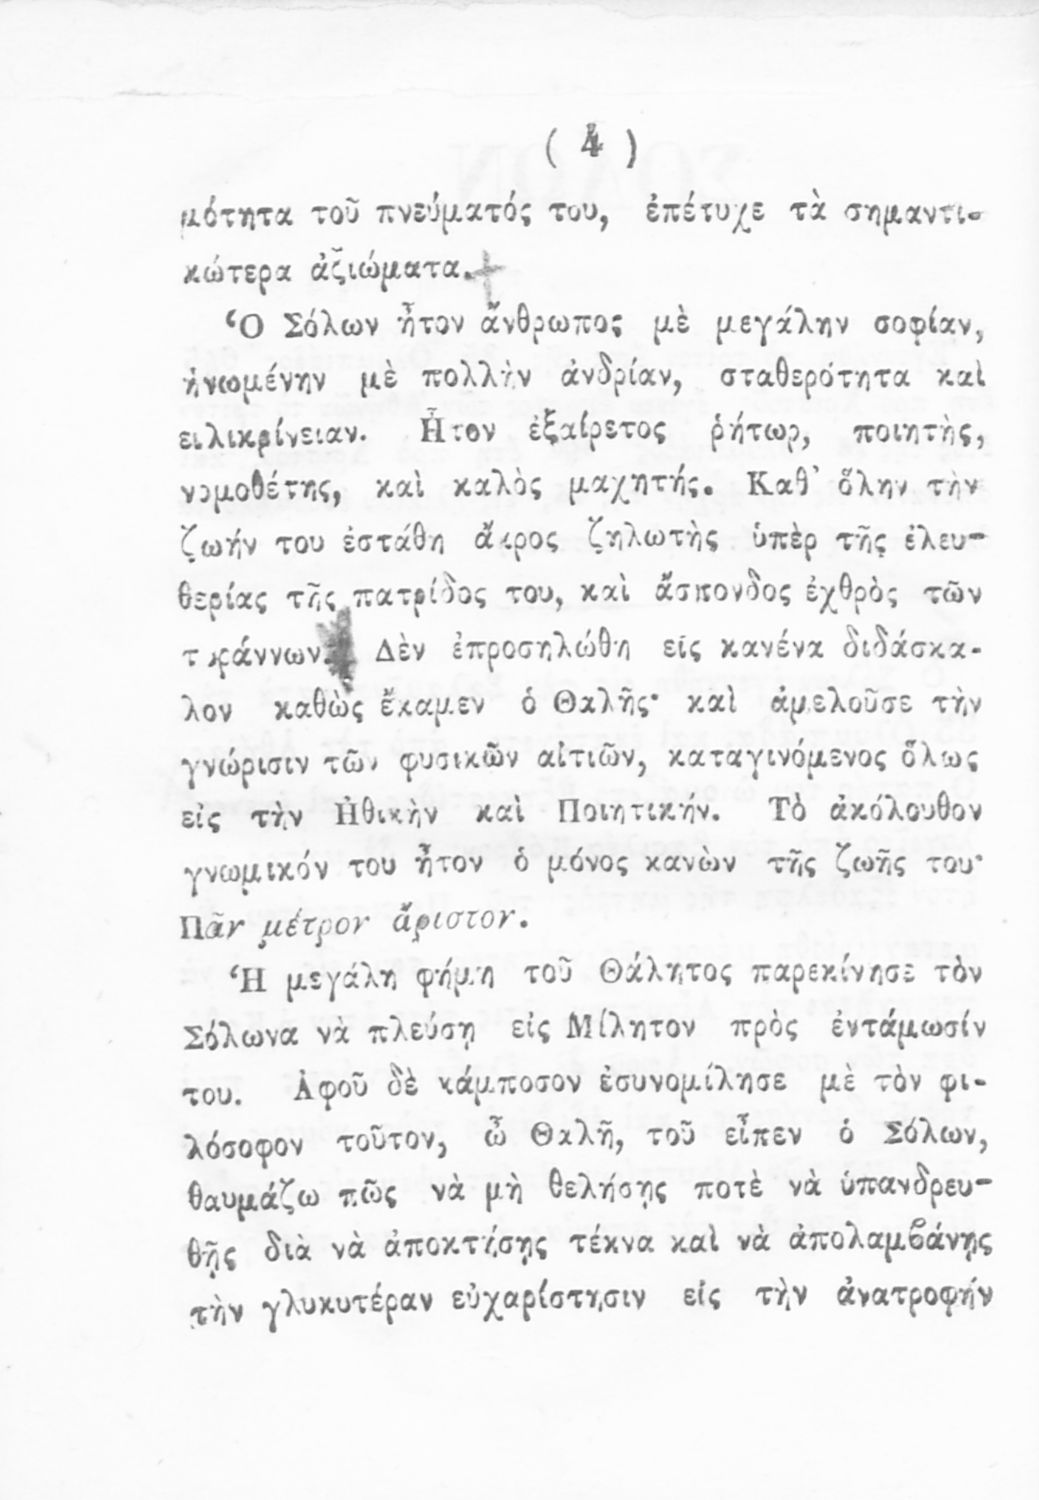 ( 4 )
μότητα τοῦ πνεύματός του, ἐπέτυχε τὰ σημαντι-
κώτερα ἀξιώματα.
Ὁ Σόλων ἦτον ἄνθρωπος μὲ μεγάλην σοφίαν,
ἡνωμένην μὲ πολλὴν ἀνδρίαν, σταθερότητα καὶ
ειλικρίνειαν. Ἦτον ἐξαίρετος ῥήτωρ, ποιητὴς,
νομοθέτης, καὶ καλὸς μαχητής. Καθ᾽ ὅλην τὴν
ζωήν του ἐστάθη ἄκρος ζηλωτὴς ὑπὲρ τῆς ἐλευ-
θερίας τῆς πατρίδος του, καὶ ἄσπονδος ἐχθρὸς τῶν
τυράννων. Δὲν ἐπροσηλώθη εἰς κανένα διδάσκα-
λον καθὼς ἔκαμεν ὁ Θαλῆς· καὶ ἀμελοῦσε τὴν
γνώρισιν τῶν φυσικῶν αἰτιῶν, καταγινόμενος ὅλως
εἰς τὴν Ἠθικὴν καὶ Ποιητικήν. Τὸ ἀκόλουθον
γνωμικόν του ἦτον ὁ μόνος κανὼν τῆς ζωῆς του·
Πᾶν μέτρον ἄριστον.
Ἡ μεγάλη φήμη τοῦ Θάλητος παρεκίνησε τὸν
Σόλωνα νὰ πλεύσῃ εἰς Μίλητον πρὸς ἐντάμωσίν
του. Ἀφοῦ δὲ κάμποσον ἐσυνομίλησε μὲ τὸν φι-
λόσοφον τοῦτον, ὦ Θαλῆ, τοῦ εἶπεν ὁ Σόλων,
θαυμάζω πῶς νὰ μὴ θελήσῃς ποτὲ νὰ ὑπανδρευ-
θῇς διὰ νὰ ἀποκτήσῃς τέκνα καὶ νὰ ἀπολαμϐάνῃς
τὴν γλυκυτέραν εὐχαρίστησιν εἰς τὴν ἀνατροφήν